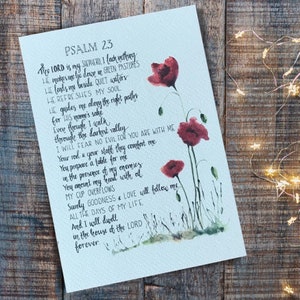 PSALM 23
The LORD is my SHEPHERD, I lack nothing.
HE makes me lie down in GREEN PASTURES
HE leads me beside QUIET waters
HE REFRESHES MY SOUL.
HE guides me along the right paths
For HIS name's sake.
Even though I walk
through the darkest valley,
I WILL FEAR NO EVIL FOR YOU ARE WITH ME
Your rod & your staff they comfort me.
You prepare a table for me
in the presence of my enemies
You anoint my head with oil
MY CUP OVERFLOWS
Surely GOODNESS & LOVE will follow me
ALL THE DAYS OF MY LIFE.
And I will dwell
in the house of the LORD
forever